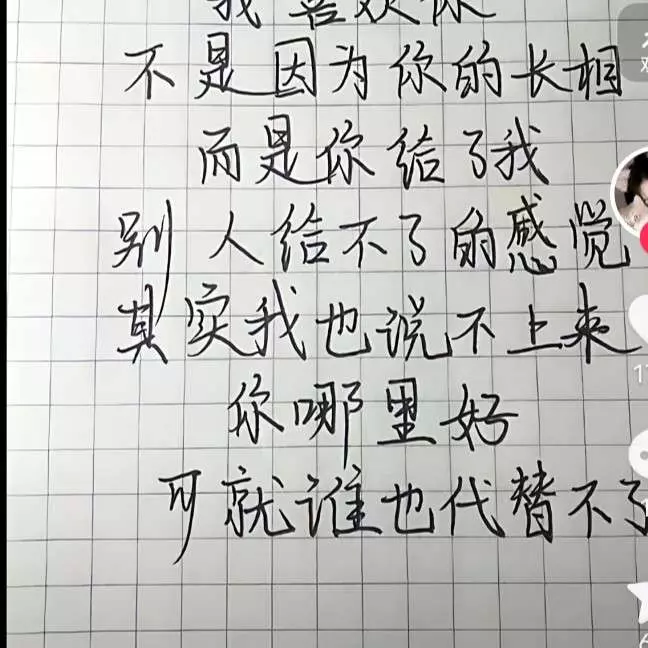 我喜欢你
不是因为你的长相
而是你给了我
别人给不了的感觉
其实我也说不上来
你哪里好
可就谁也代替不了